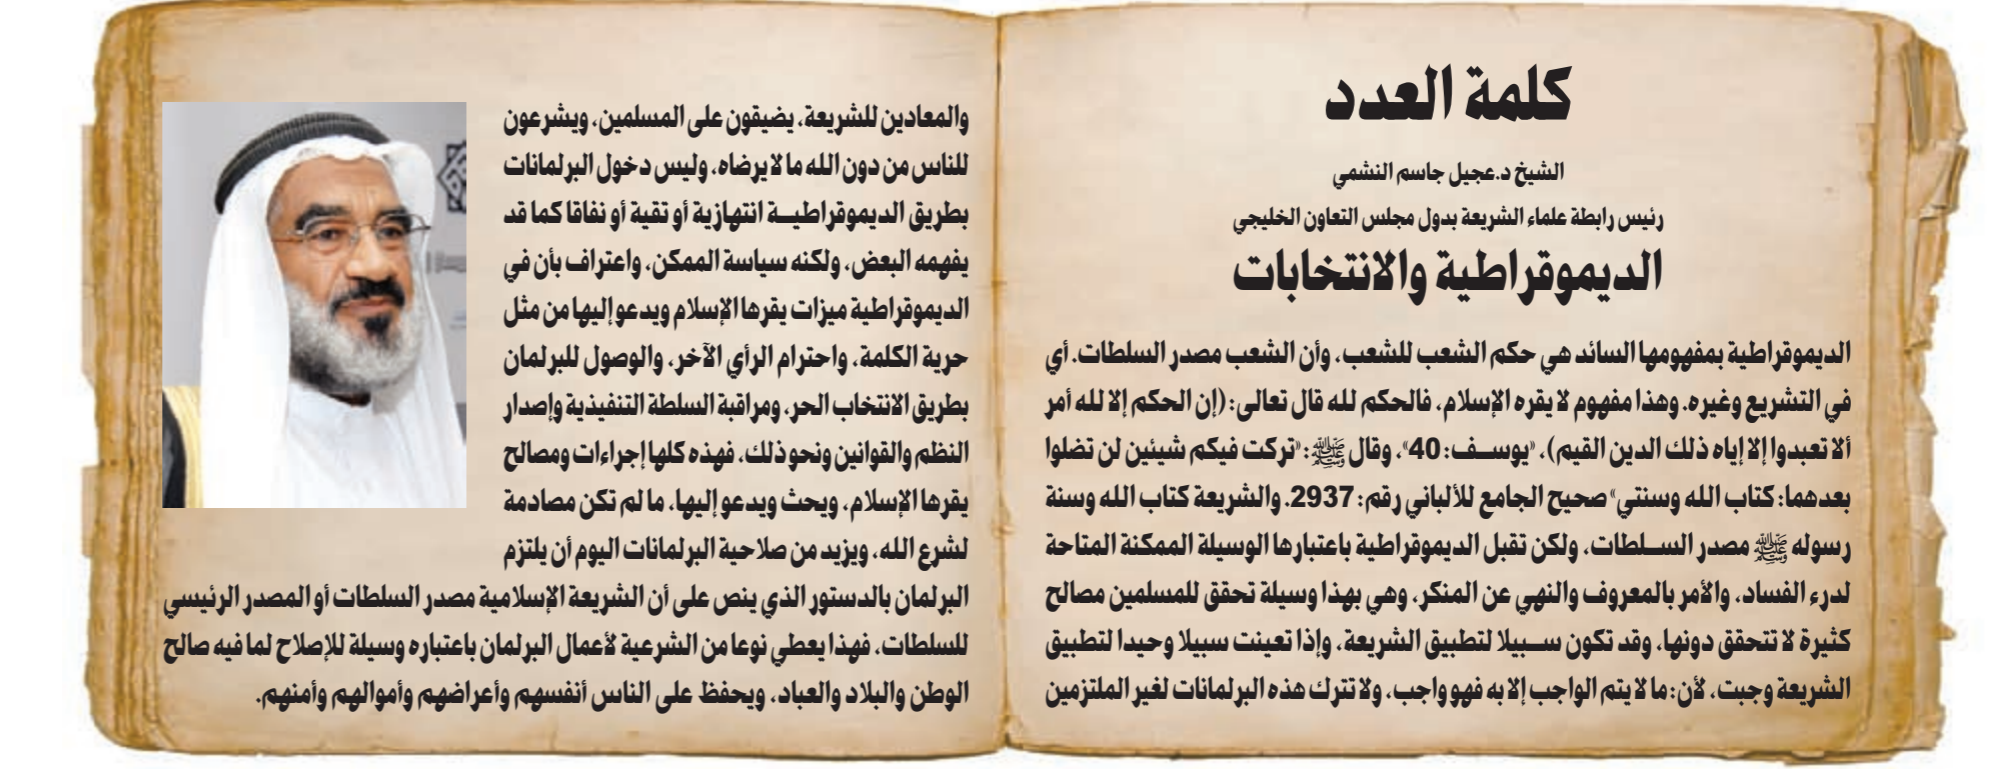 كلمة العدد
الشيخ د.عجيل جاسم النشمي
رئيس رابطة علماء الشريعة بدول مجلس التعاون الخليجي
الديموقراطية والانتخابات
الديموقراطية بمفهومها السائد هي حكم الشعب للشعب، وأن الشعب مصدر السلطات. أي
في التشريع وغيره. وهذا مفهوم لا يقره الإسلام، فالحكم لله قال تعالى: (إن الحكم إلا لله أمر
ألا تعبدوا إلا إياه ذلك الدين القيم)، «يوسف: 40»، وقال ﷺ: «تركت فيكم شيئين لن تضلوا
بعدهما: كتاب الله وسنتي» صحيح الجامع للألباني رقم: 2937. والشريعة كتاب الله وسنة
رسوله ﷺ مصدر السلطات، ولكن تقبل الديموقراطية باعتبارها الوسيلة الممكنة المتاحة
لدرء الفساد، والأمر بالمعروف والنهي عن المنكر، وهي بهذا وسيلة تحقق للمسلمين مصالح
كثيرة لا تتحقق دونها، وقد تكون سبيلا لتطبيق الشريعة، وإذا تعينت سبيلا وحيدا لتطبيق
الشريعة وجبت، لأن: ما لا يتم الواجب إلا به فهو واجب، ولا تترك هذه البرلمانات لغير الملتزمين
والمعادين للشريعة، يضيقون على المسلمين، ويشرعون
للناس من دون الله ما لا يرضاه، وليس دخول البرلمانات
بطريق الديموقراطية انتهازية أو تقية أو نفاقا كما قد
يفهمه البعض، ولكنه سياسة الممكن، واعتراف بأن في
الديموقراطية ميزات يقرها الإسلام ويدعو إليها من مثل
حرية الكلمة، واحترام الرأي الآخر، والوصول للبرلمان
بطريق الانتخاب الحر، ومراقبة السلطة التنفيذية وإصدار
النظم والقوانين ونحو ذلك، فهذه كلها إجراءات ومصالح
يقرها الإسلام، ويحث ويدعو إليها، ما لم تكن مصادمة
لشرع الله، ويزيد من صلاحية البرلمانات اليوم أن يلتزم
البرلمان بالدستور الذي ينص على أن الشريعة الإسلامية مصدر السلطات أو المصدر الرئيسي
للسلطات، فهذا يعطي نوعا من الشرعية لأعمال البرلمان باعتباره وسيلة للإصلاح لما فيه صالح
الوطن والبلاد والعباد، ويحفظ على الناس أنفسهم وأعراضهم وأموالهم وأمنهم.